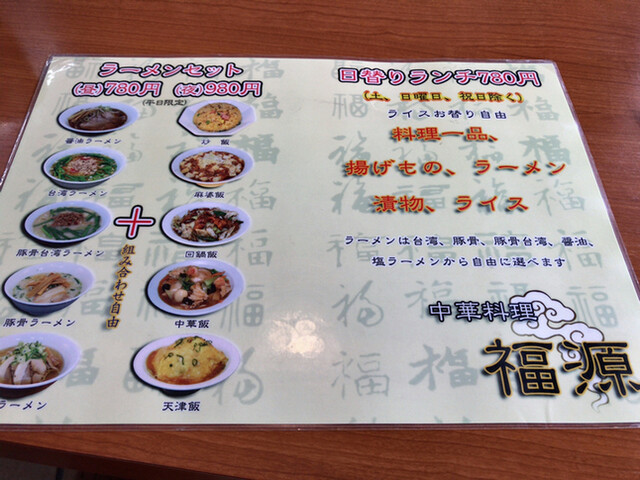 ラーメンセット
(昼)780円 (夜)980円
(平日限定)
醤油ラーメン
炒 飯
台湾ラーメン
麻婆飯
豚骨台湾ラーメン
回鍋飯
豚骨ラーメン
中華飯
ラーメン
天津飯
+
組み合わせ自由
日替りランチ780円
(土、日曜日、祝日除く)
ライスお替り自由
料理一品、
揚げもの、ラーメン
漬物、ライス
ラーメンは台湾、豚骨、豚骨台湾、醤油、
塩ラーメンから自由に選べます
中華料理
福源